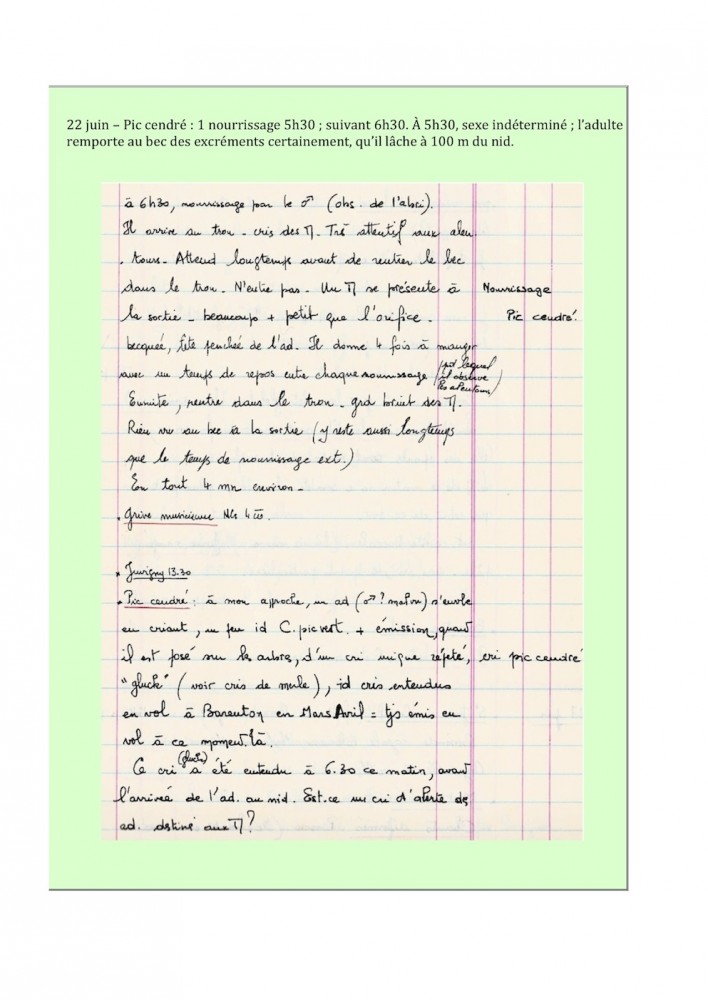 22 juin – Pic cendré : 1 nourrissage 5h30 ; suivant 6h30. À 5h30, sexe indéterminé ; l’adulte
remporte au bec des excréments certainement, qu’il lâche à 100 m du nid.
à 6h30, nourrissage par le ♂ (obs. de l'abri).
Il arrive au trou - cris des Π. Très attentif aux alen
. tours - Attend longtemps avant de rentrer le bec
dans le trou - N'entre pas - Un Π se présente à
Nourrissage
la sortie - beaucoup + petit que l'orifice -
Pic cendré.
becquée, tête penchée de l'ad. Il donne 4 fois à manger
avec un temps de repos entre chaque nourrissage (pdt lequel
il observe
les alentours)
Ensuite, rentre dans le trou - grd bruit des Π.
Rien vu au bec à la sortie (y reste aussi longtemps
que le temps de nourrissage ext.)
En tout 4 mn environ -
. Grive musicienne
* Juvigny 13.30
. Pic cendré : à mon approche, un ad (♂ ? mal vu) s'envole
en criant, un peu id C. pic vert. + émission, quand
il est posé sur les arbres, d'un cri unique répété,
cri pic cendré
"gluck" (voir cris de merle), id cris entendus
en vol à Barenton en Mars Avril = tjs émis en
vol à ce moment.là.
Ce cri (gluck) a été entendu à 6.30 ce matin, avant
l'arrivée de l'ad. au nid. Est.ce un cri d'alerte des
ad. destiné aux Π ?